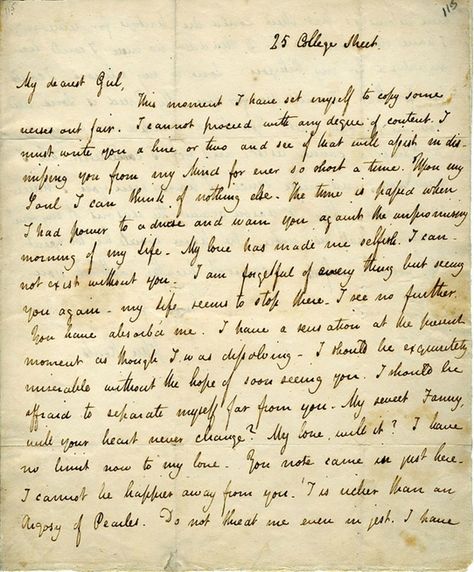 115
115
25 College Street.
My dearest Girl,
This moment I have set myself to copy some
verses out fair. I cannot proceed with any degree of content. I
must write you a line or two and see if that will assist in dis-
missing you from my Mind for ever so short a time. Upon my
Soul I can think of nothing else. The time is passed when
I had power to advise and warn you against the unpromising
morning of my Life. My love has made me selfish. I can-
not exist without you. I am forgetful of every thing but seeing
you again. my Life seems to stop there. I see no further.
You have absorb'd me. I have a sensation at the present
moment as though I was dissolving. I should be exquisitely
miserable without the hope of soon seeing you. I should be
afraid to separate myself far from you. My sweet Fanny,
will your heart never change? My love, will it? I have
no limit now to my love. You note came in just here.
I cannot be happier away from you. 'T is richer than an
Argosy of Pearles. Do not threat me even in jest. I have